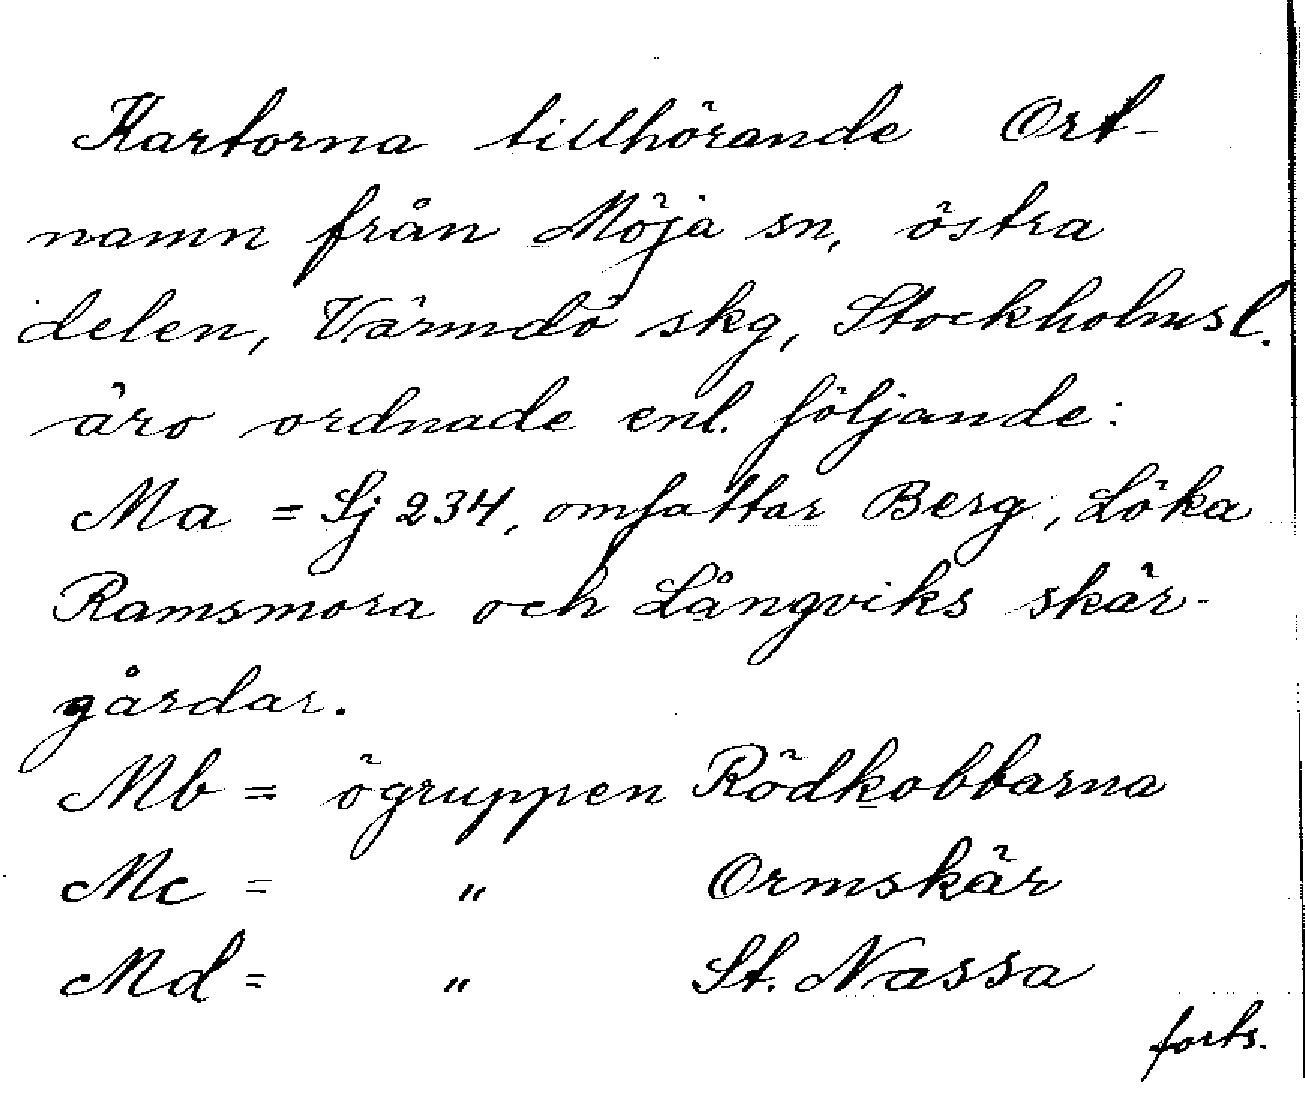 Kartorna tillhörande Ort-
namn från Möja sn, östra
delen, Värmdö skg, Stockholms l.
äro ordnade enl. följande:
Ma = Sj 234, omfattar Berg, Löka
Ramsmora och Långviks skär-
gårdar.
Mb = ögruppen Rödkobbarna
Mc = " Ormskär
Md = " St. Nassa
forts.